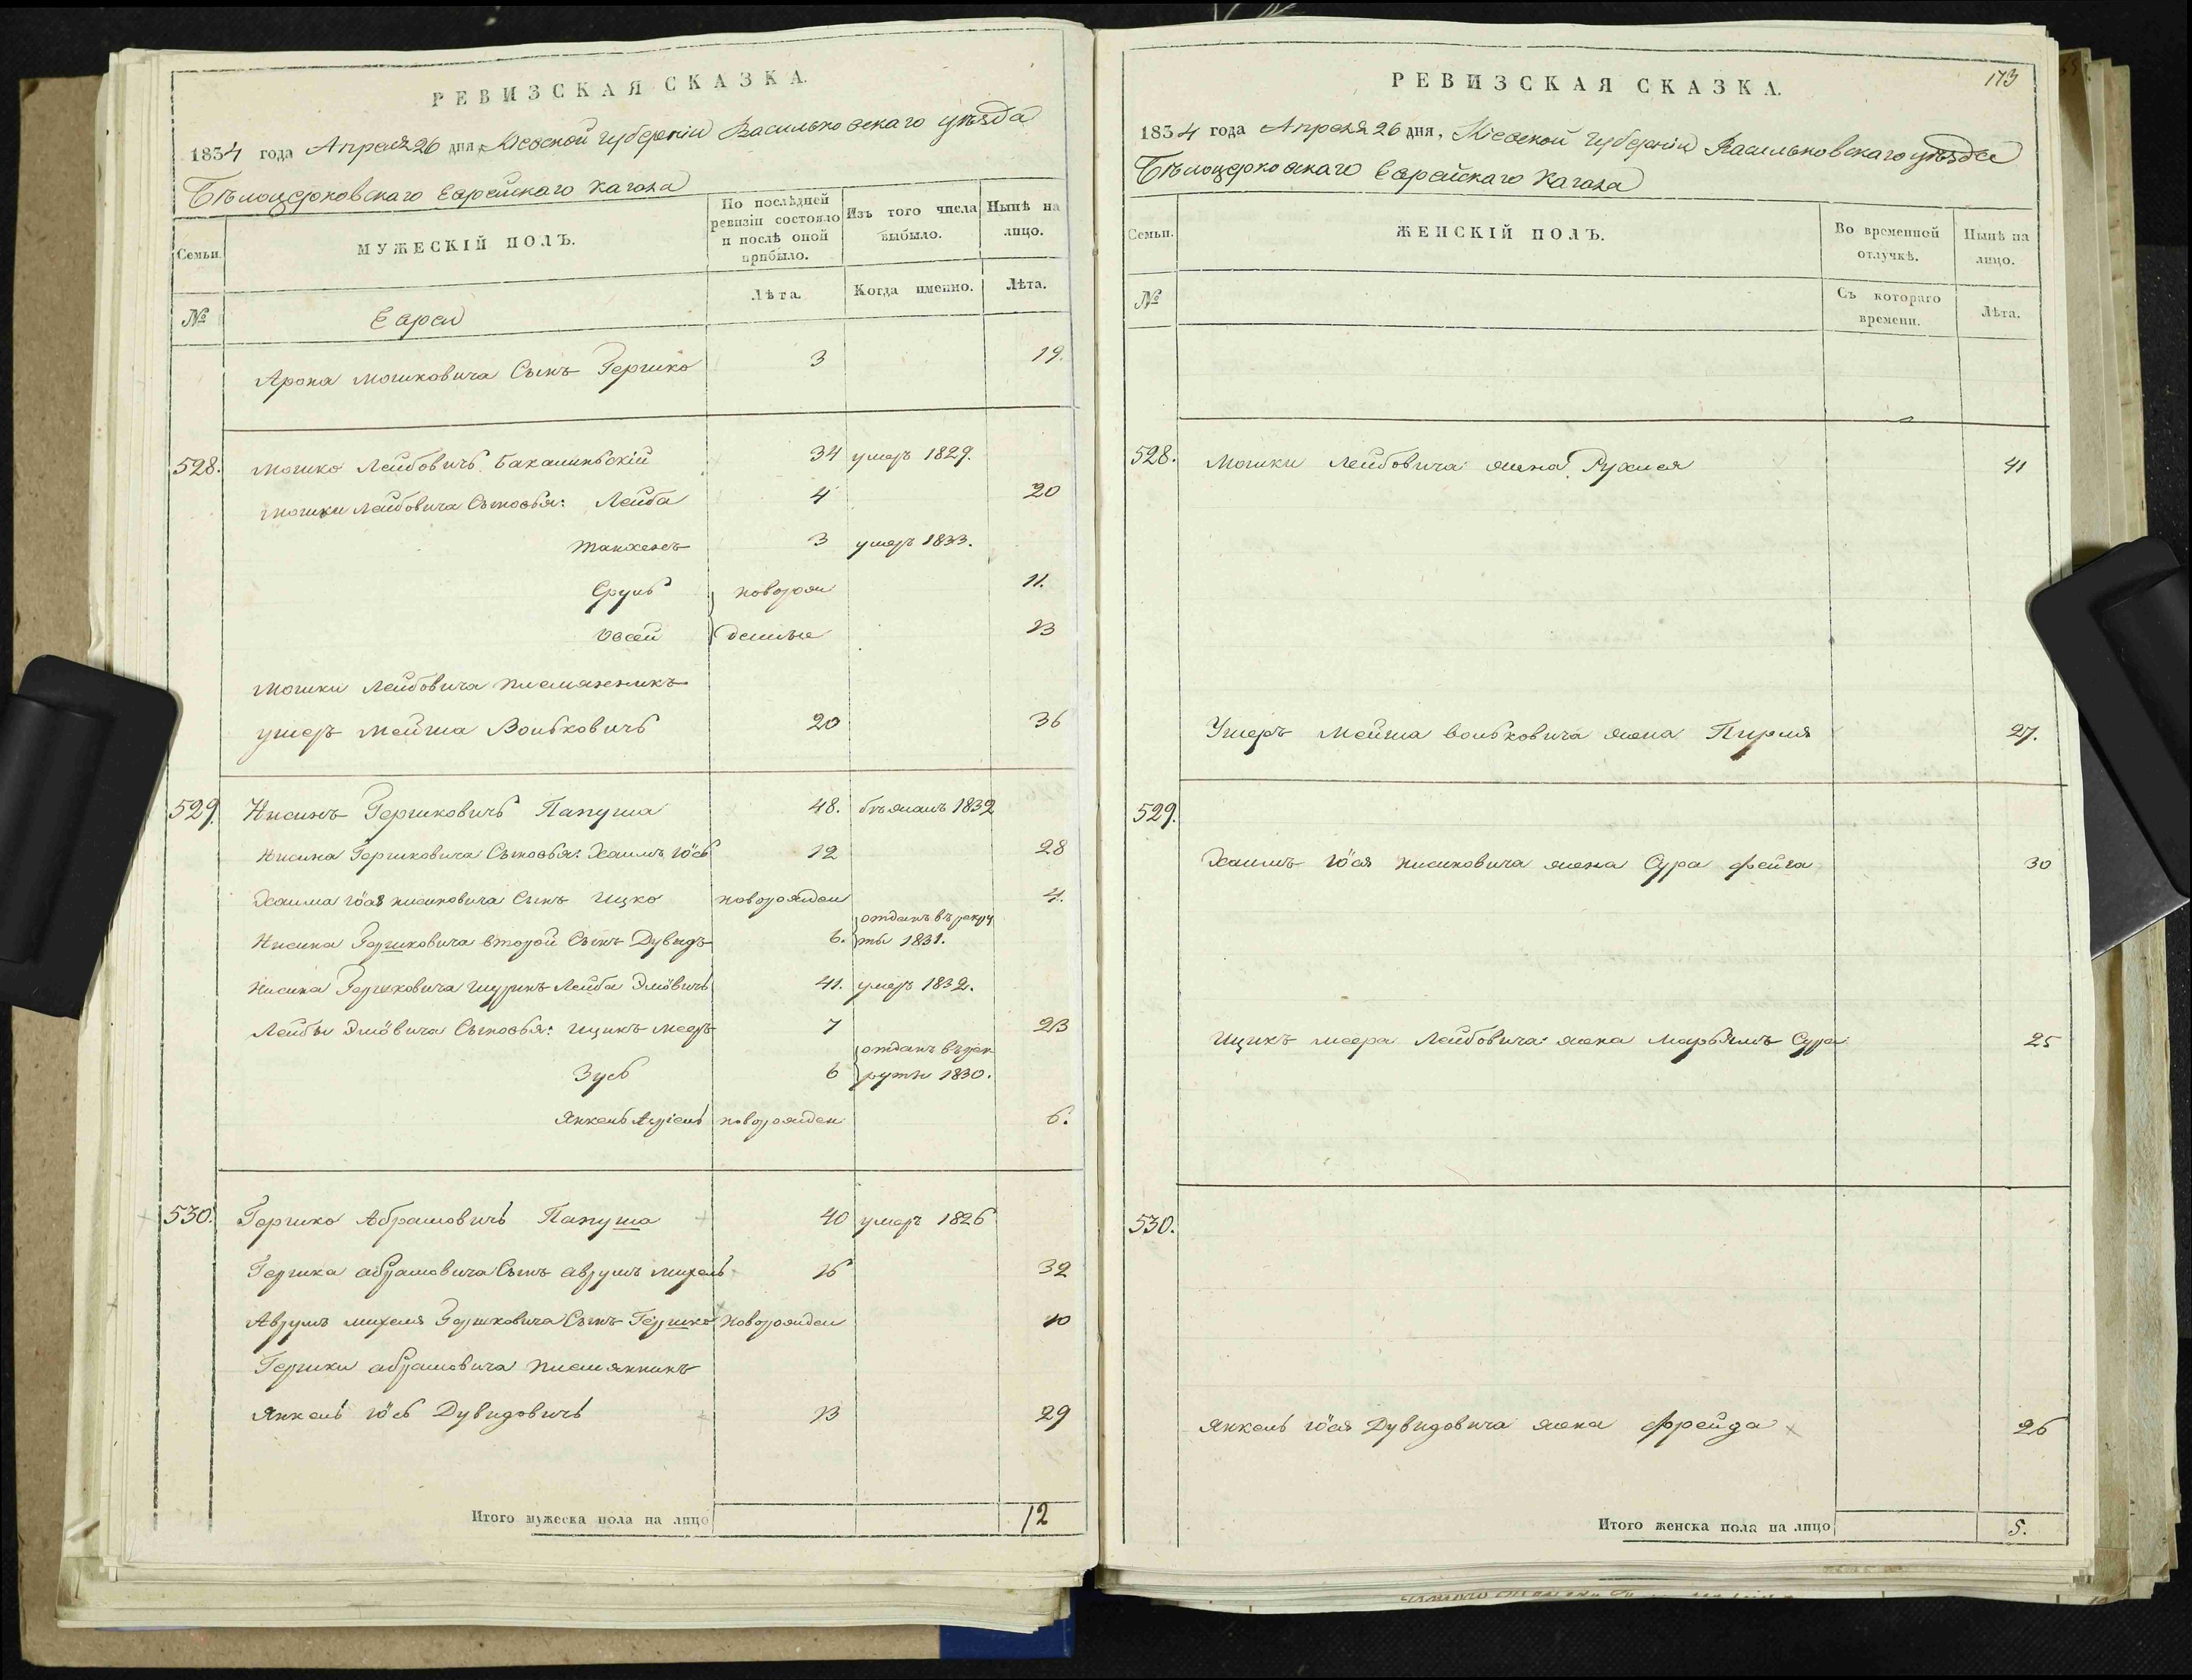 РЕВИЗСКАЯ СКАЗКА.
1834 года Апреля 26 дня, Кіевской губерніи Васильковскаго уѣзда
Бѣлоцерковскаго Еврейскаго Кагала
Семьи.
МУЖЕСКІЙ ПОЛЪ.
По послѣдней ревизіи состояло и послѣ оной прибыло.
Изъ того числа выбыло.
Нынѣ на лицо.
№
Евреи
Лѣта.
Когда именно.
Лѣта.
Арона Мошковича Сынъ Гершко 3 19.
528. Мошко Лейбовичь 34 умеръ 1829.
Мошки Лейбовича Сыновья: Лейба 4 20
Танхелъ 3 умеръ 1833.
Сруль новорож 11.
Овсей денные 13
Мошки Лейбовича племянникъ
Ушеръ Мейша Вольковичь 20 36
529. Нисинъ Гершковичь Папуша 48. бѣжалъ 1832
Нисина Гершковича Сыновья: Хаимъ Іось 12 28
Хаима Іося Нисиновича Сынъ Ицко новорожден 4.
Нисина Гершковича второй Сынъ Дувидъ 6. отданъ въ рекру
ты 1831.
Нисина Гершковича Шуринъ Лейба Эліовичь 41. умеръ 1832.
Лейбы Эліовича Сыновья: Ицикъ Мееръ 7 23
отданъ в рек
Зусь 6 руты 1830.
Янкель новорожден 6.
530. Гершко Абрамовичь Папуша 40 умеръ 1826
Гершка Абрамовича Сынъ Аврумъ Михель 16 32
Аврумъ Михеля Гершковича Сынъ Гершко новорожден 10
Гершки Абрамовича племянникъ
Янкель Іось Дувидовичь 13 29
Итого мужеска пола на лицо 12
173
РЕВИЗСКАЯ СКАЗКА.
1834 года Апреля 26 дня, Кіевской губерніи Васильковскаго уѣзда
Бѣлоцерковскаго Еврейскаго Кагала
Семьи.
ЖЕНСКІЙ ПОЛЪ.
Во временной отлучкѣ.
Нынѣ на лицо.
№
Съ котораго времени.
Лѣта.
528. Мошки Лейбовича жена Рухля 41
Ушеръ Мейша Вольковича жена Пирля 27.
529.
Хаимъ Іося Нисиновича жена Сура Фейга 30
Ицикъ Меера Лейбовича жена Марьямъ Сура 25
530.
Янкель Іося Дувидовича жена Фрейда 26
Итого женска пола на лицо 5.